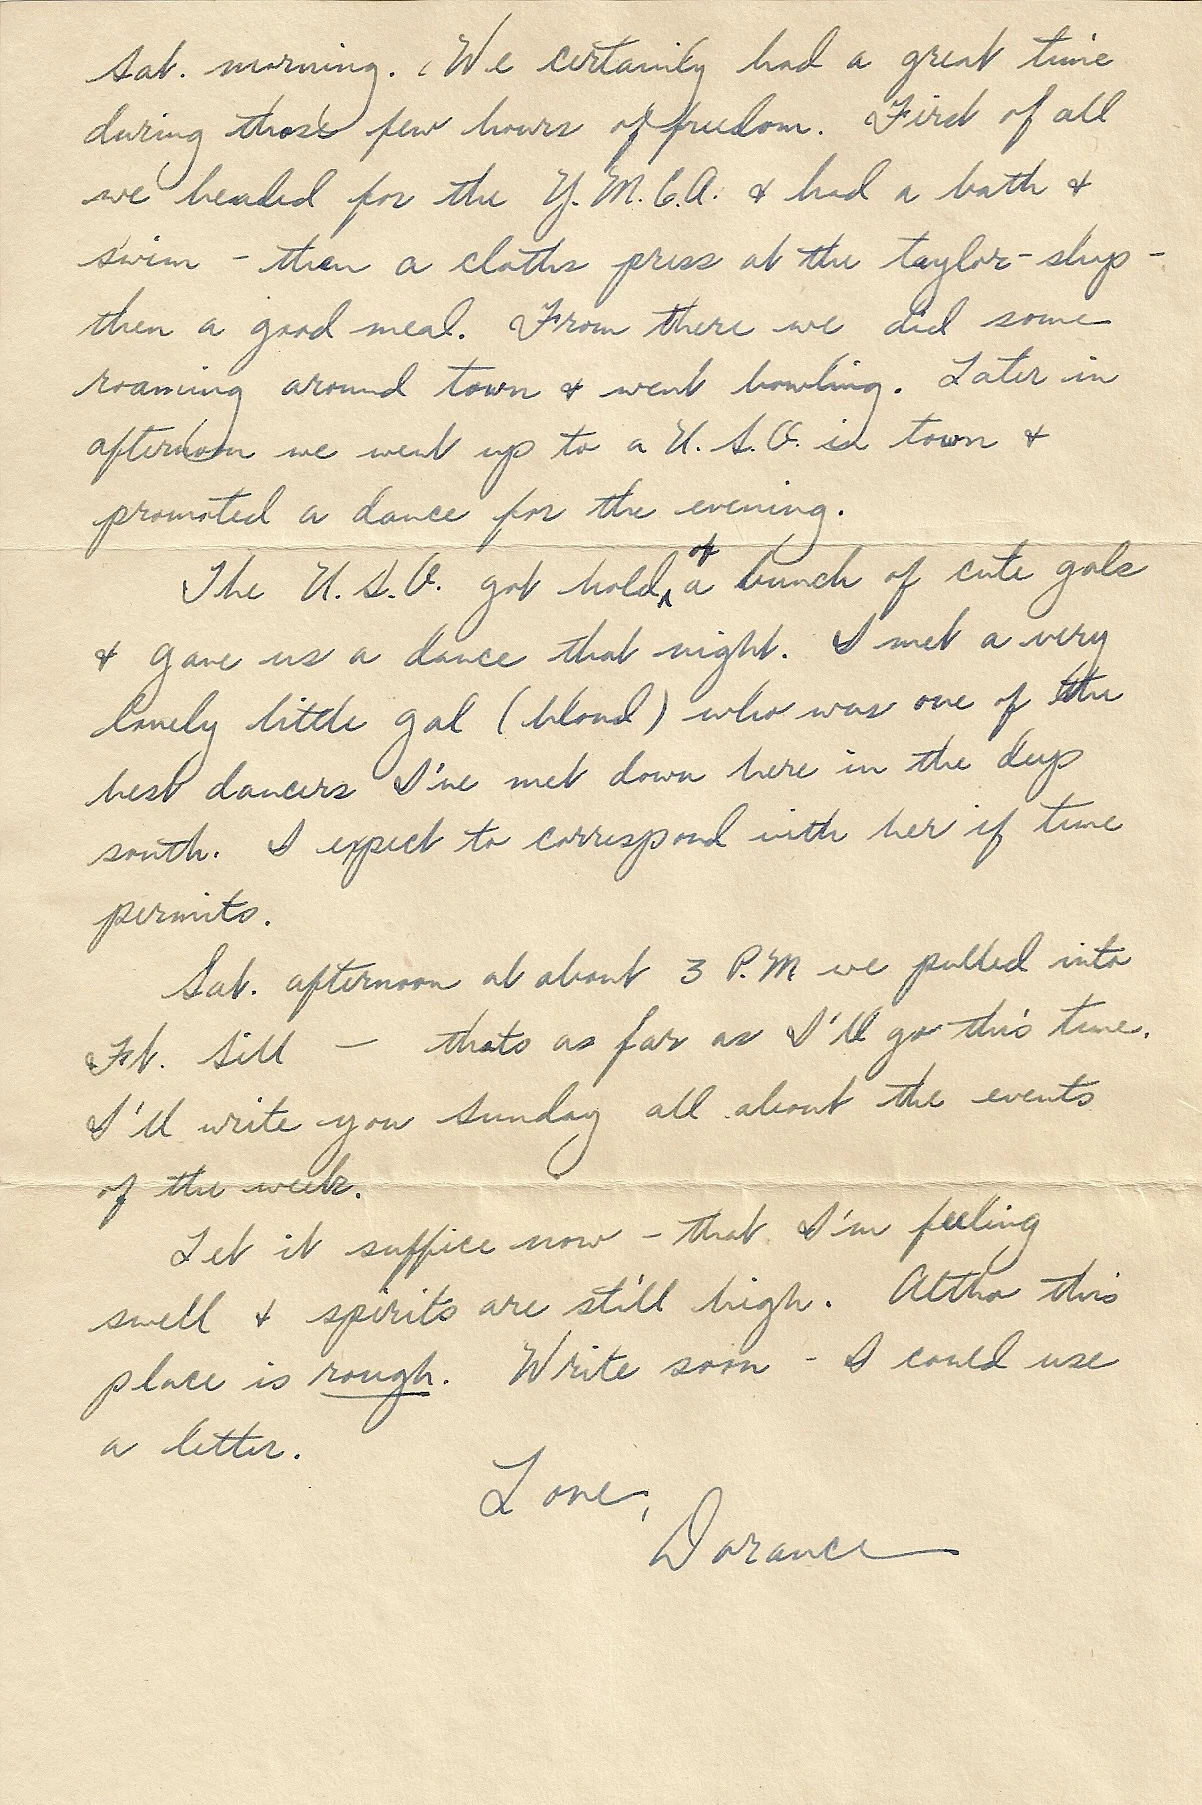 Sat. morning. We certainly had a great time
during those few hours of freedom. First of all
we headed for the Y.M.C.A. & had a bath &
swim - then a cloths press at the taylor-shop -
then a good meal. From there we did some
roaming around town & went bowling. Later in
afternoon we went up to a U.S.O. in town &
promoted a dance for the evening.
The U.S.O. got hold of a bunch of cute gals
& gave us a dance that night. I met a very
lovely little gal (blond) who was one of the
best dancers I've met down here in the deep
south. I expect to correspond with her if time
permits.
Sat. afternoon at about 3 P.M we pulled into
Ft. Sill — thats as far as I'll go this time.
I'll write you Sunday all about the events
of the week.
Let it suffice now - that I'm feeling
swell & spirits are still high. Altho this
place is rough. Write soon - I could use
a letter.
Love,
Dorance